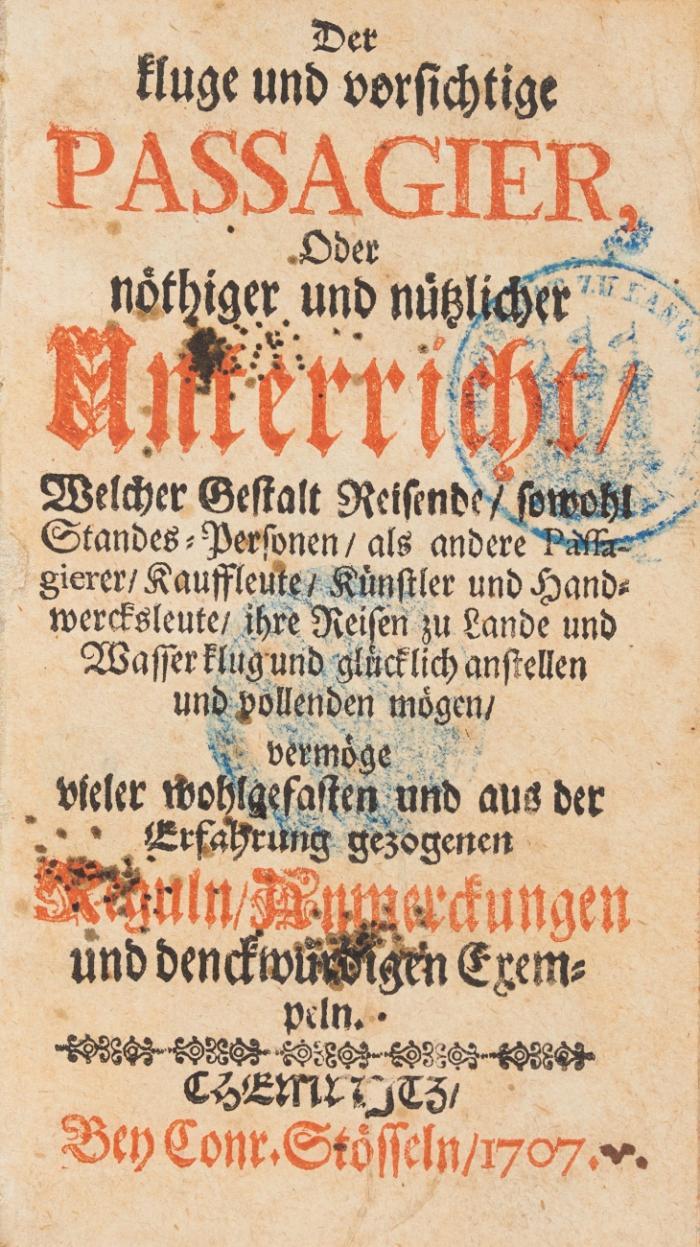 Der
kluge und vorsichtige
PASSAGIER,
Oder
nöthiger und nützlicher
Unterricht/
Welcher Gestalt Reisende/ sowohl
Standes-Personen/ als andere Passa-
gierer/ Kauffleute/ Künstler und Hand-
wercksleute/ ihre Reisen zu Lande und
Wasser klug und glücklich anstellen
und vollenden mögen/
vermöge
vieler wohlgefasten und aus der
Erfahrung gezogenen
Reguln/ Anmerckungen
und denckwürdigen Exem-
peln.
CHEMNITZ/
Bey Conr. Stösseln/ 1707.
ZU